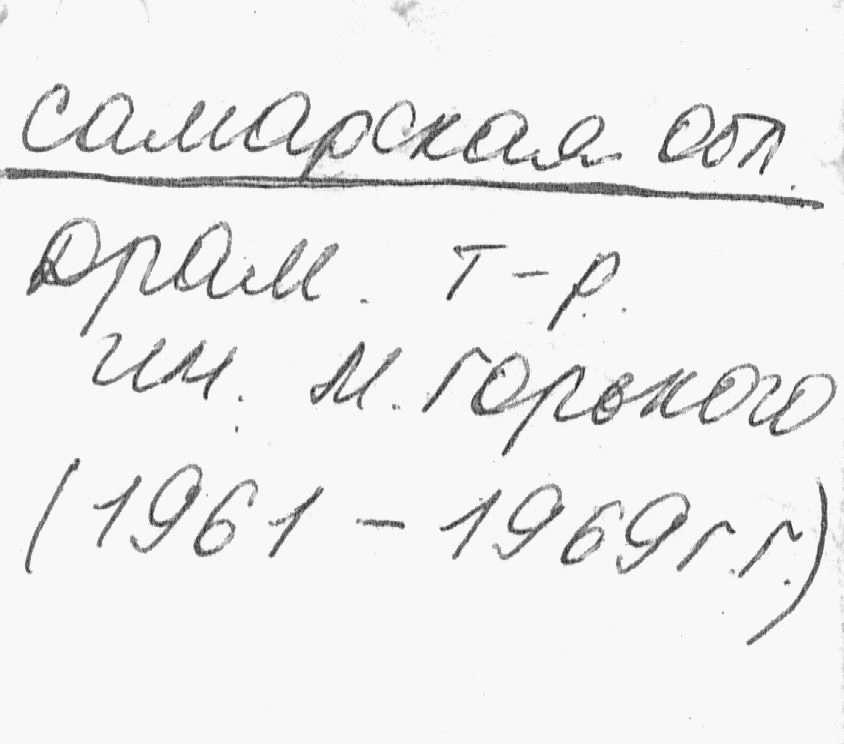 Самарская обл.
Драм. т-р.
им. М. Горького
(1961 – 1969 г.г.)